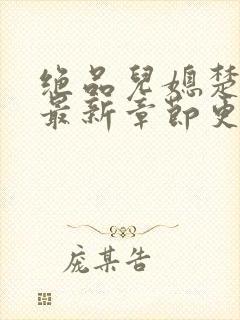 绝品兒媳楚
最新章節史
庞某告